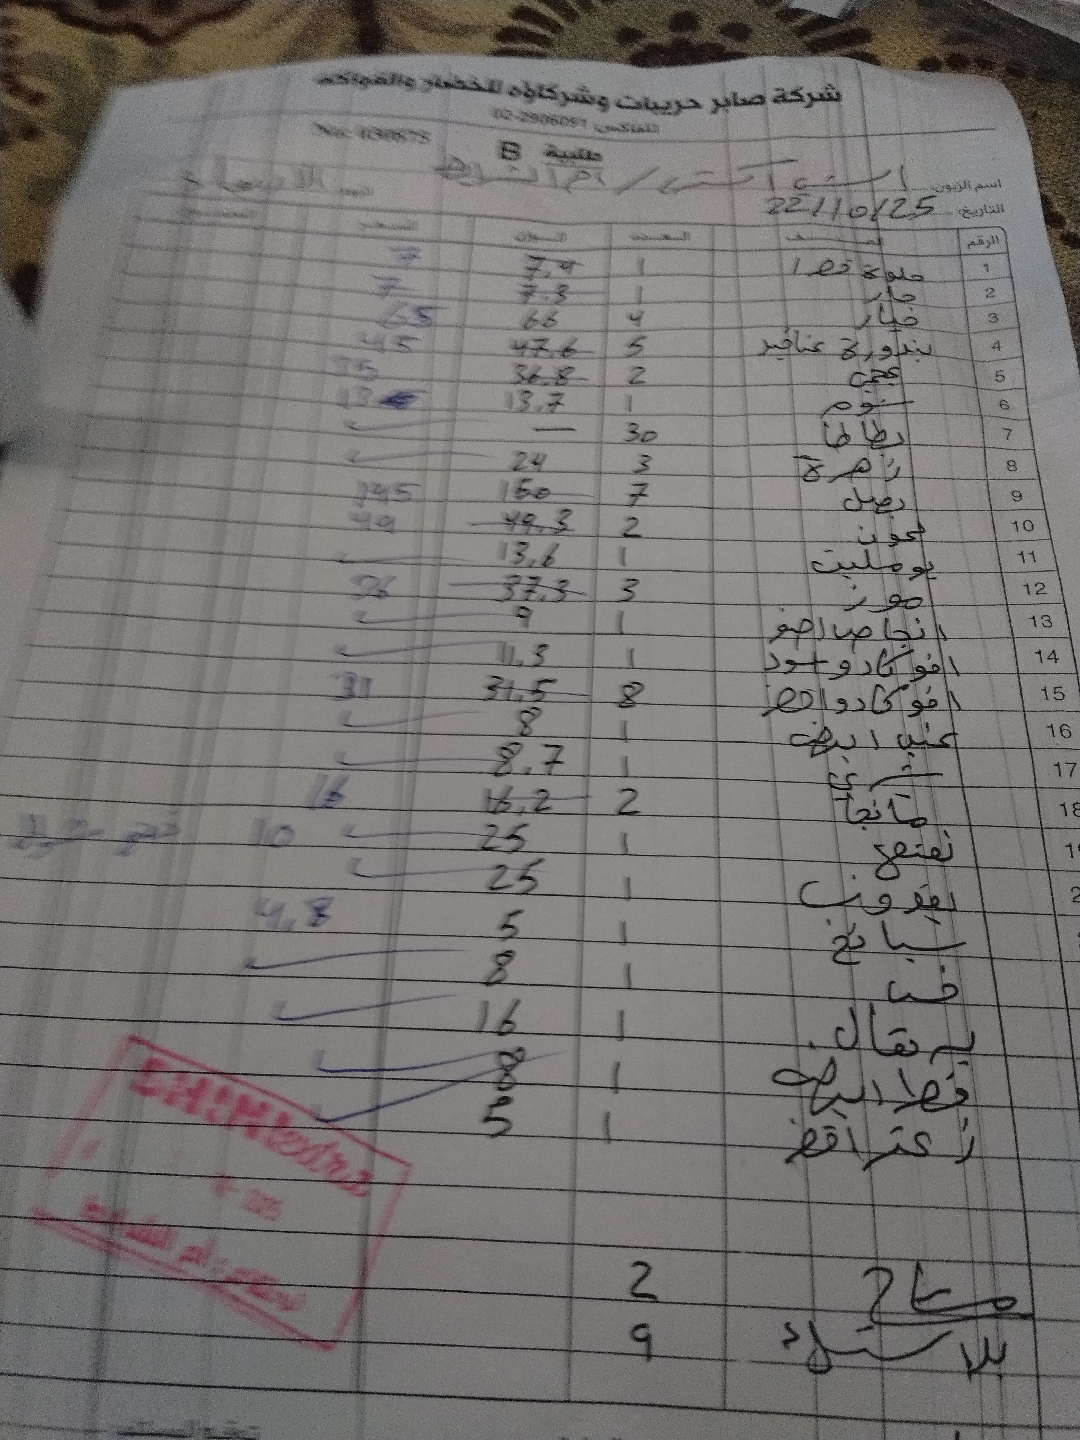 شركة صابر حريبات وشركاؤه للخضار والفواكه
تلفاكس: 02-2906091
طلبية B
No: 030675
اسم الزبون: / ام الشرايط اليوم الاربعاء
التاريخ: 22/10/25
الرقم الصنف العدد الوزن السعر
1 حلوة خضرا 1 7.4 7
2 حار 1 7.3 7
3 خيار 4 66 65
4 بندورة عناقيد 5 47.6 45
5 2 36.8 35
6 ثوم 1 13.7 13
7 بطاطا 30 —
8 زهرة 3 24
9 بصل 7 150 145
10 ليمون 2 49.3 49
11 بوملي 1 13.6
12 موز 3 37.3 36
13 انجاص اصفر 1 9
14 افوكادو اسود 1 11.3
15 افوكادو اخضر 8 31.5 31
16 عنب ابيض 1 8
17 شري 1 8.7
18 مانجا 2 16.2 16
نعنع 1 25 10
بقدونس 1 25
سبانخ 1 5 4.8
خس 1 8
برتقال 1 16
فطر ابيض 1 8
زعتر اخضر 1 5
مشاح 2
بلاستيك 9